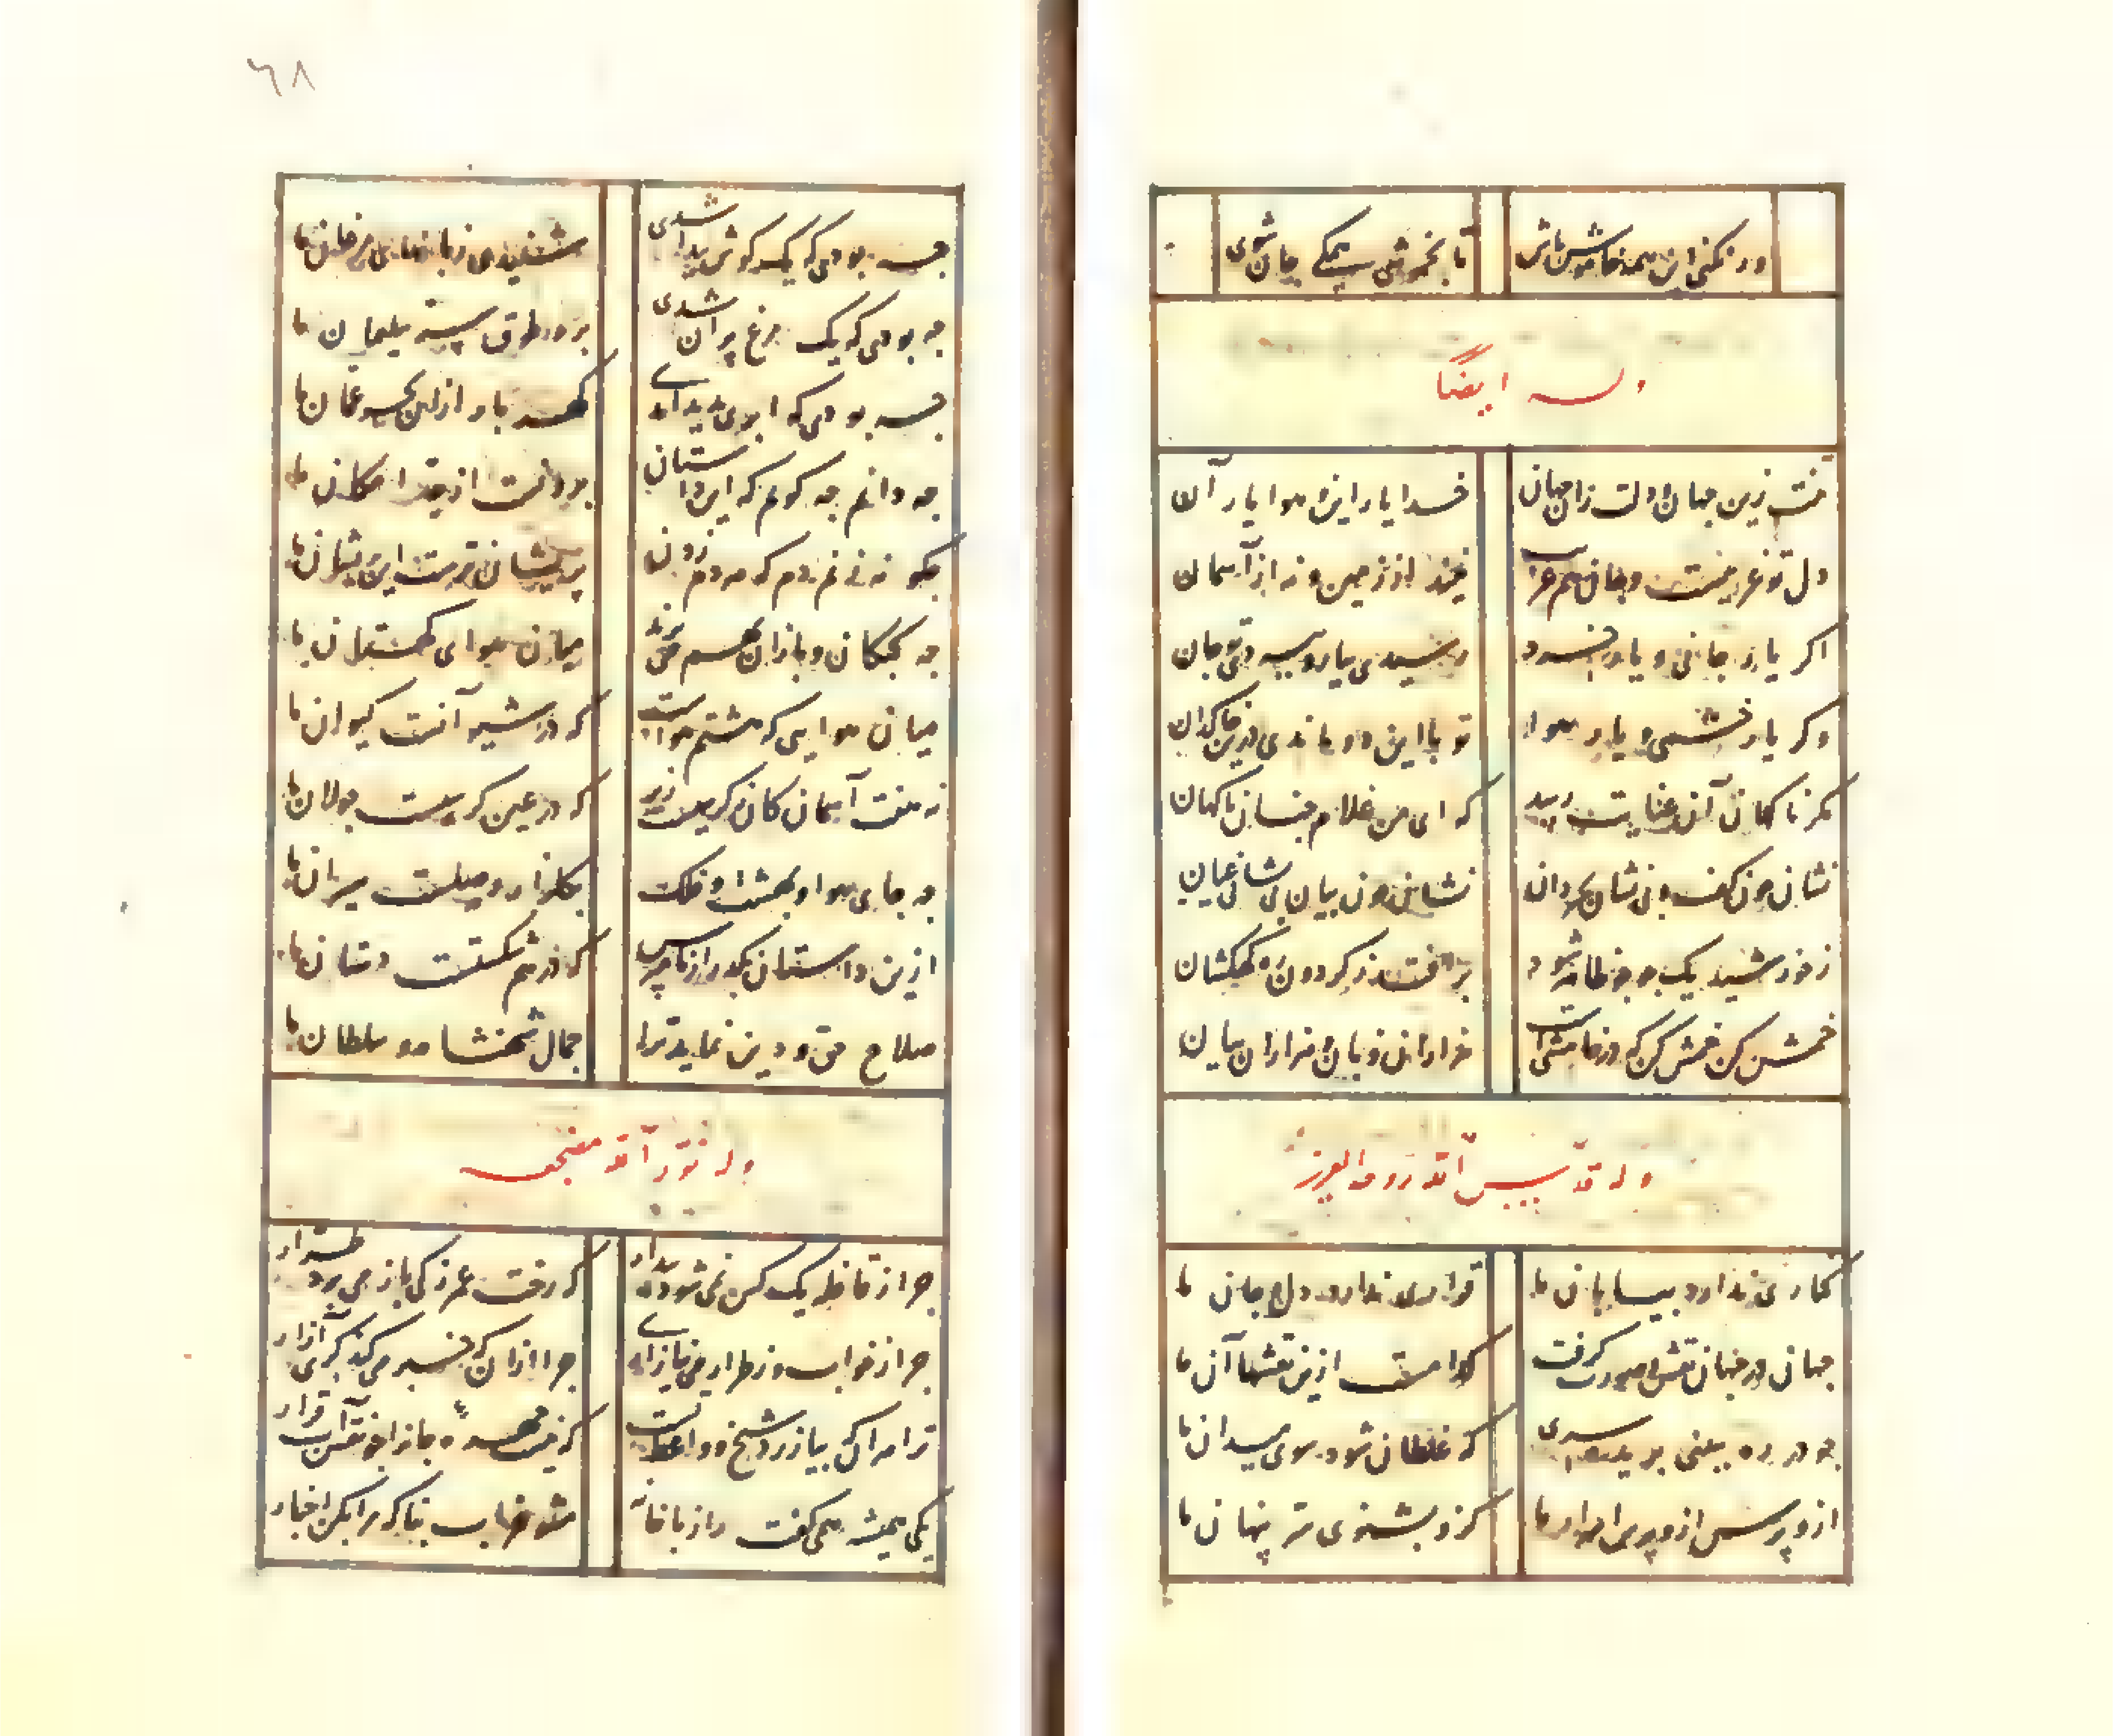 ور نکنی این همه خاموش باش تا بخموشی همگی جان شوی
وله ایضا
تنت زین جهان دلت زان جهان خدا یار این هوا یار آن
دل تو غریبست و جان هم غریب نیند از زمین و نه از آسمان
اکر یار جانی و یار خرد رسیدی بیار و ببردی تو جان
وکر یار خشمی و یار هوا تو با این دو ماندی درین خاکدان
مکر ناکهان آن عنایت رسید که ای من غلام چنان ناکهان
نشان چون کف و بی نشان بحر دان نشان چون بیان بی نشان عیان
ز خورشید یک جو چو ظاهر شود بروبد ز کردون ره کهکشان
خمش کن خمش کن که در خامشیست هزاران زبان و هزاران بیان
وله قدس الله روحه العزیز
کناری ندارد بیابان ما قراری ندارد دل و جان ما
جهان در جهان نقش و صورت کرفت کدامست ازین نقشها آن ما
چو در ره ببینی بریده سری که غلطان شود سوی میدان ما
ازو پرس ازو پرس اسرار ما کزو بشنوی سر پنهان ما
٦٨
چه بودی که یک کوش پیدا شدی شنیدی زبانهای مرغان ما
چه بودی که یک مرغ پران شدی برو طوق سر سلیمان ما
چه دانم چه کویم که این داستان برونست از حد امکان ما
چکونه زنم دم که هر دم زدن پریشان ترست این پریشان ما
چه کبکان و بازان بهم می پرند میان هوای کهستان ما
میان هوایی که هشتم هواست که در شیو آنست کیوان ما
نه هفت آسمان کان کزین زیر که در عین کرسیست جولان ما
چه جای هوا و بهشت و فلک بکلزار وصلست سیران ما
ازین داستان بکذر از ما مپرس که درهم شکستست دستان ما
صلاح حق و دین نماید ترا جمال شهنشاه و سلطان ما
وله نور الله مضجعه
چرا ز قافله یک کس نمی شود بیدار که رخت عمر ز کی باز می برد طرار
چرا ز خواب و ز طرار می نیازاری چرا ازان که خبر می کند کنی آزار
ترا هر آنک بیازرد شیخ و واعظ تست که نیست مهر جهان را چو نقش آب قرار
یکی همیشه همی کفت راز با خانه مشو خراب بناکه مرا بکن اخبار